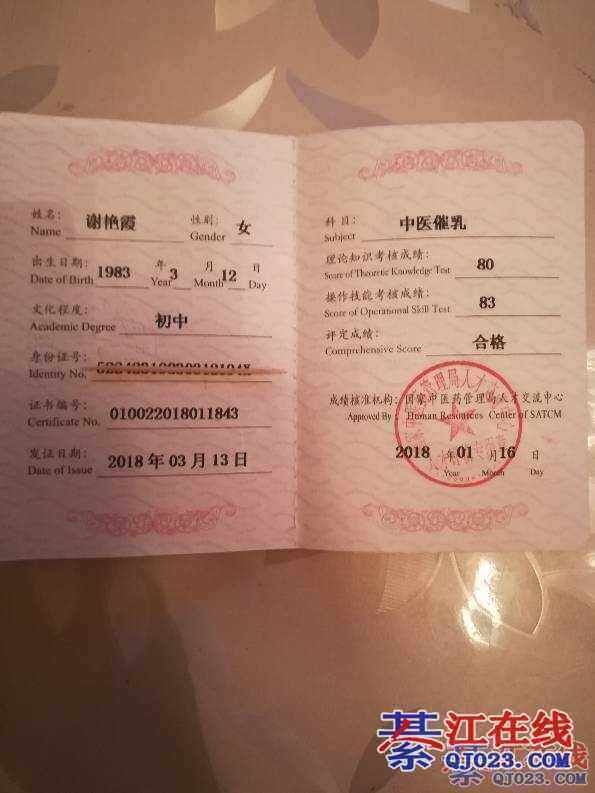 姓名: 谢艳霞 性别: 女
Name Gender
出生日期: 1983 年 3 月 12 日
Date of Birth Year Month Day
文化程度: 初中
Academic Degree
身份证号:
Identity No.
证书编号: 010022018011843
Certificate No.
发证日期: 2018 年 03 月 13 日
Date of Issue
科目: 中医催乳
Subject
理论知识考核成绩: 80
Score of Theoretic Knowledge Test
操作技能考核成绩: 83
Score of Operational Skill Test
评定成绩: 合格
Comprehensive Score
成绩核准机构: 国家中医药管理局人才交流中心
Approved By : Human Resources Center of SATCM
2018 年 01 月 16 日
Year Month Day
管理局人才
綦江在线
QJ023.COM
綦江在线
QJ023.COM